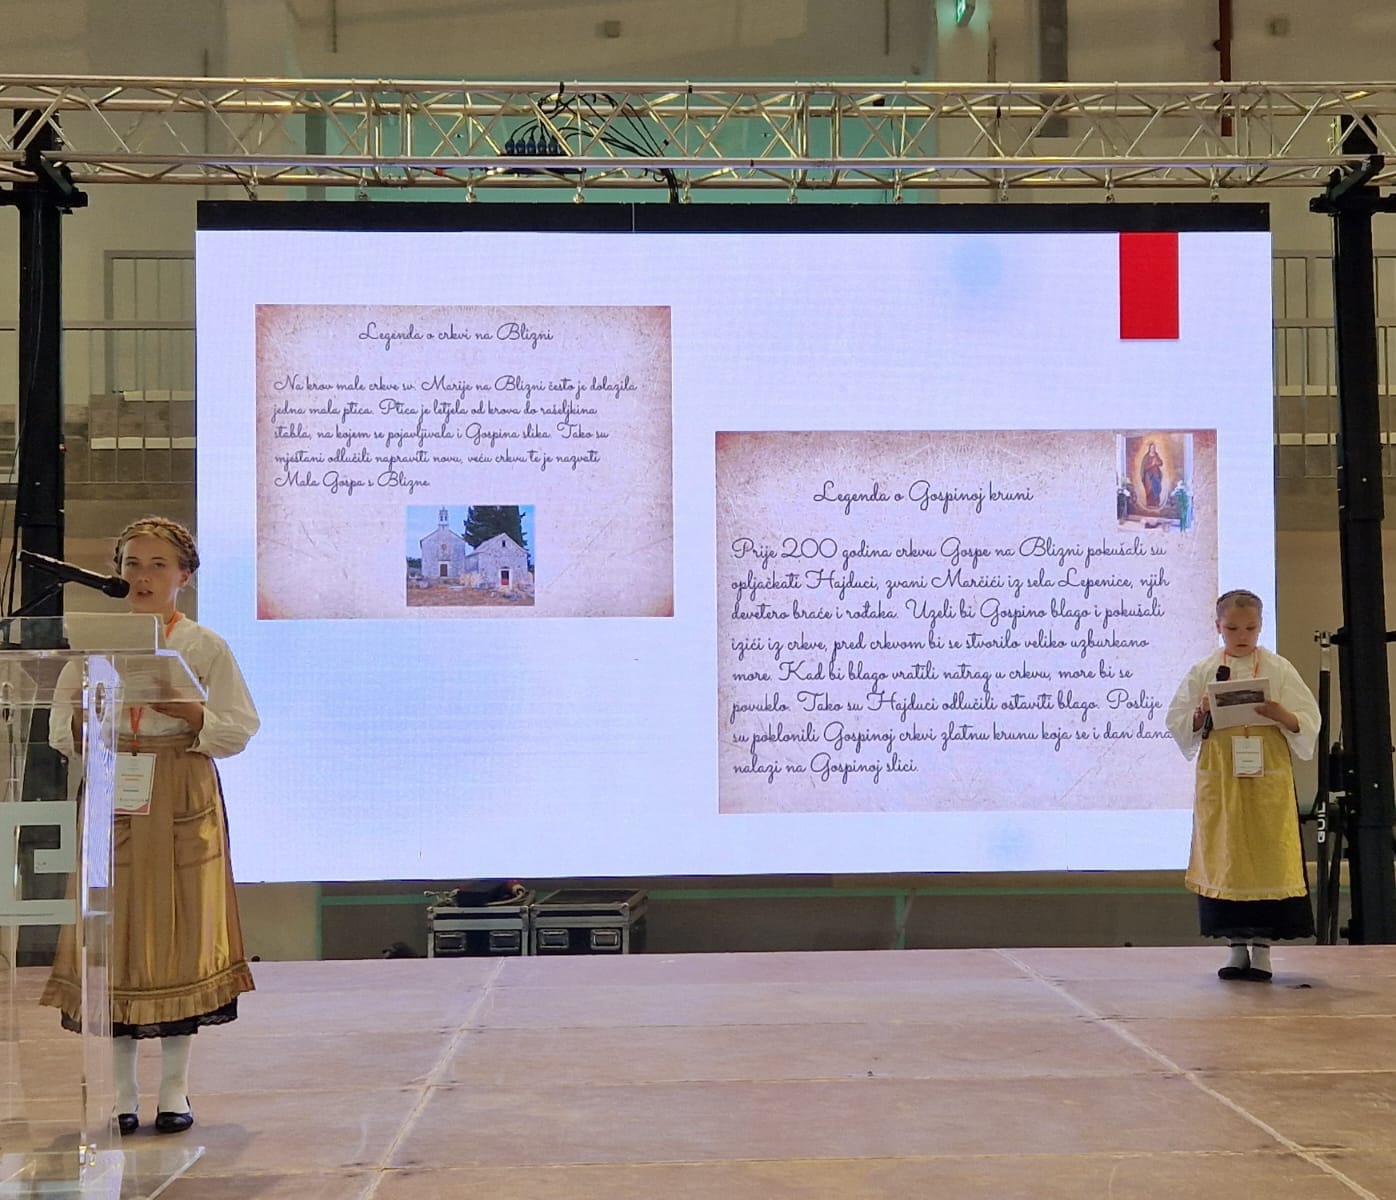 Legenda o crkvi na Blizni
Na krov male crkve sv. Marije na Blizni često je dolazila
jedna mala ptica. Ptica je letjela od krova do rašeljkina
stabla, na kojem se pojavljivala i Gospina slika. Tako su
mještani odlučili napraviti novu, veću crkvu te je nazvati
Mala Gospa s Blizne.
Legenda o Gospinoj kruni
Prije 200 godina crkvu Gospe na Blizni pokušali su
opljačkati Hajduci, zvani Marčići iz sela Lepenice, njih
devetero braće i rođaka. Uzeli bi Gospino blago i pokušali
izići iz crkve, pred crkvom bi se stvorilo veliko uzburkano
more. Kad bi blago vratili natrag u crkvu, more bi se
povuklo. Tako su Hajduci odlučili ostaviti blago. Poslije
su poklonili Gospinoj crkvi zlatnu krunu koja se i dan dana
nalazi na Gospinoj slici.